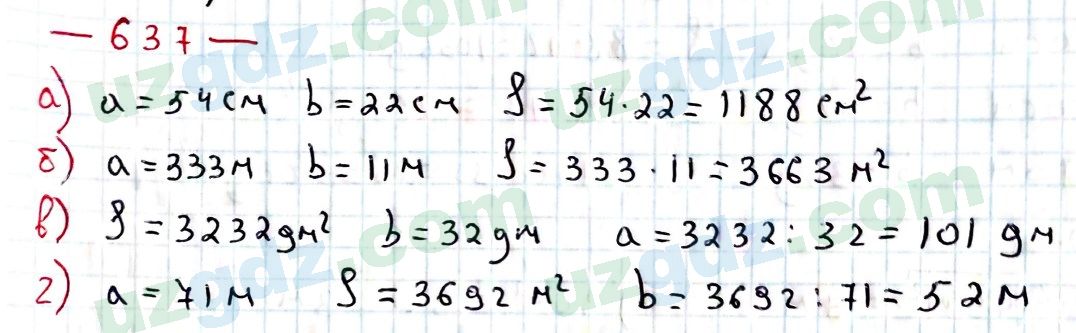 — 637 —
а) a = 54 см b = 22 см S = 54 · 22 = 1188 см²
б) a = 333 м b = 11 м S = 333 · 11 = 3663 м²
в) S = 3232 дм² b = 32 дм a = 3232 : 32 = 101 дм
г) a = 71 м S = 3692 м² b = 3692 : 71 = 52 м
uzgdz.com
uzgdz.com
uzgdz.com
uzgdz.com